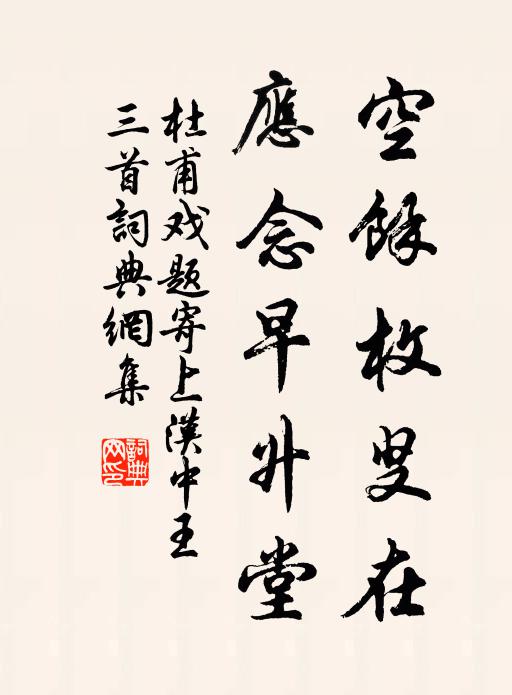 空餘枚叟在
應念早升堂
杜甫戏题寄上漢中王
三首詞典網集
詞典網印